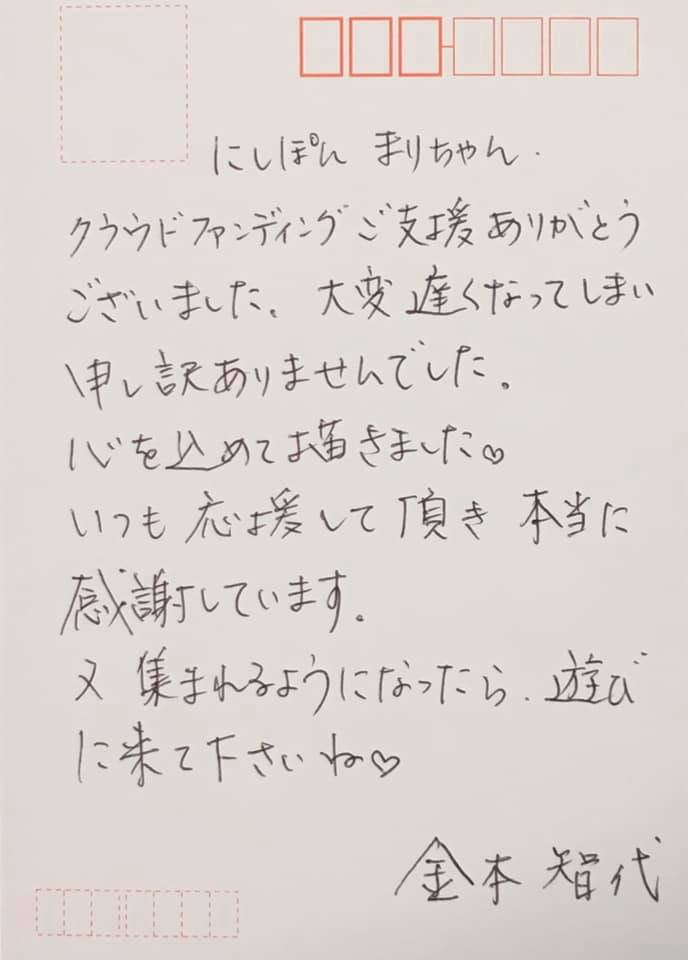 にしぽん まりちゃん.
クラウドファンディングご支援ありがとう
ございました。大変遅くなってしまい
申し訳ありませんでした。
心を込めてお描きました♡
いつも応援して頂き 本当に
感謝しています。
又 集まれるようになったら、遊び
に来て下さいね♡
金本 智代